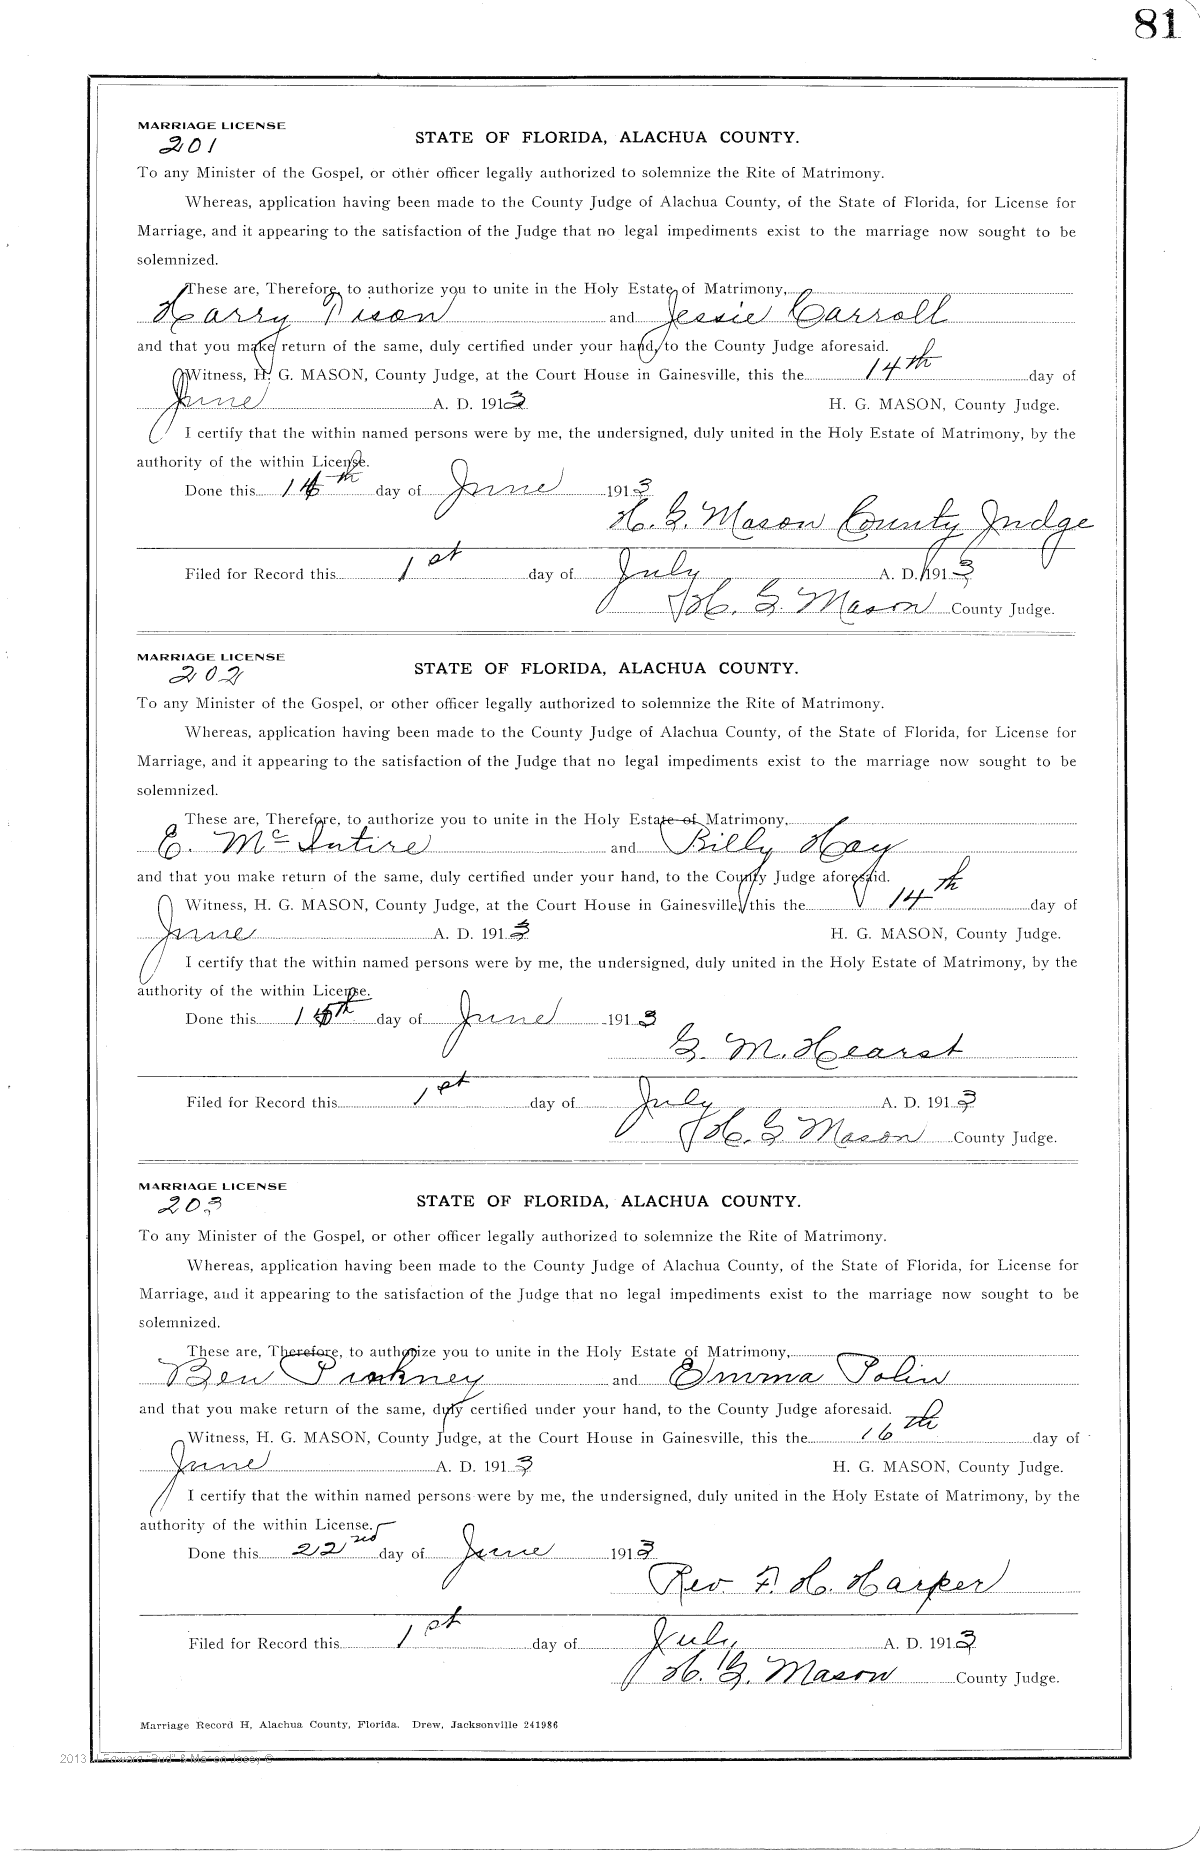 81
MARRIAGE LICENSE
201
STATE OF FLORIDA, ALACHUA COUNTY.
To any Minister of the Gospel, or other officer legally authorized to solemnize the Rite of Matrimony.
Whereas, application having been made to the County Judge of Alachua County, of the State of Florida, for License for
Marriage, and it appearing to the satisfaction of the Judge that no legal impediments exist to the marriage now sought to be
solemnized.
These are, Therefore, to authorize you to unite in the Holy Estate of Matrimony,
Harry Tison and Jessie Carroll
and that you make return of the same, duly certified under your hand, to the County Judge aforesaid.
Witness, H. G. MASON, County Judge, at the Court House in Gainesville, this the 14th day of
June A. D. 1913 H. G. MASON, County Judge.
I certify that the within named persons were by me, the undersigned, duly united in the Holy Estate of Matrimony, by the
authority of the within License.
Done this day of June 1913
H. G. Mason County Judge
Filed for Record this 1st day of July A. D. 1913
H. G. Mason County Judge.
MARRIAGE LICENSE
202
STATE OF FLORIDA, ALACHUA COUNTY.
To any Minister of the Gospel, or other officer legally authorized to solemnize the Rite of Matrimony.
Whereas, application having been made to the County Judge of Alachua County, of the State of Florida, for License for
Marriage, and it appearing to the satisfaction of the Judge that no legal impediments exist to the marriage now sought to be
solemnized.
These are, Therefore, to authorize you to unite in the Holy Estate of Matrimony,
E. Mc Intire and Billy Hay
and that you make return of the same, duly certified under your hand, to the County Judge aforesaid.
Witness, H. G. MASON, County Judge, at the Court House in Gainesville, this the 14th day of
June A. D. 1913 H. G. MASON, County Judge.
I certify that the within named persons were by me, the undersigned, duly united in the Holy Estate of Matrimony, by the
authority of the within License.
Done this 15th day of June 1913
G. M. Hearst
Filed for Record this 1st day of July A. D. 1913
H. G Mason County Judge.
MARRIAGE LICENSE
203
STATE OF FLORIDA, ALACHUA COUNTY.
To any Minister of the Gospel, or other officer legally authorized to solemnize the Rite of Matrimony.
Whereas, application having been made to the County Judge of Alachua County, of the State of Florida, for License for
Marriage, and it appearing to the satisfaction of the Judge that no legal impediments exist to the marriage now sought to be
solemnized.
These are, Therefore, to authorize you to unite in the Holy Estate of Matrimony,
Ben Pinkney and Emma Polin
and that you make return of the same, duly certified under your hand, to the County Judge aforesaid.
Witness, H. G. MASON, County Judge, at the Court House in Gainesville, this the 16th day of
June A. D. 1913 H. G. MASON, County Judge.
I certify that the within named persons were by me, the undersigned, duly united in the Holy Estate of Matrimony, by the
authority of the within License.
Done this 22nd day of June 1913
Rev. F. H. Harper
Filed for Record this 1st day of July A. D. 1913
H. G. Mason County Judge.
Marriage Record H, Alachua County, Florida. Drew, Jacksonville 241986
2013